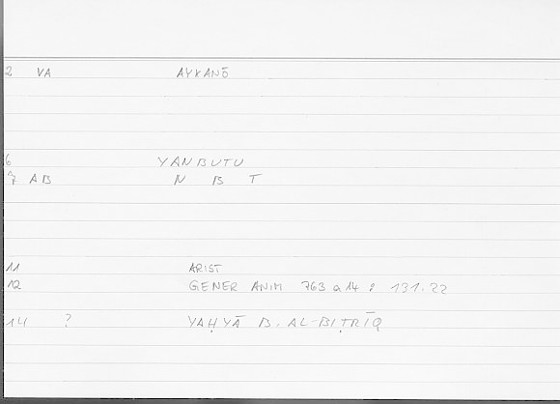 2 VA AYKANŌ
6 YANBUTU
7 AB N B T
11 ARIST
12 GENER ANIM 763 a 14 : 131.22
14 ? YAḤYĀ B. AL-BIṬRĪQ